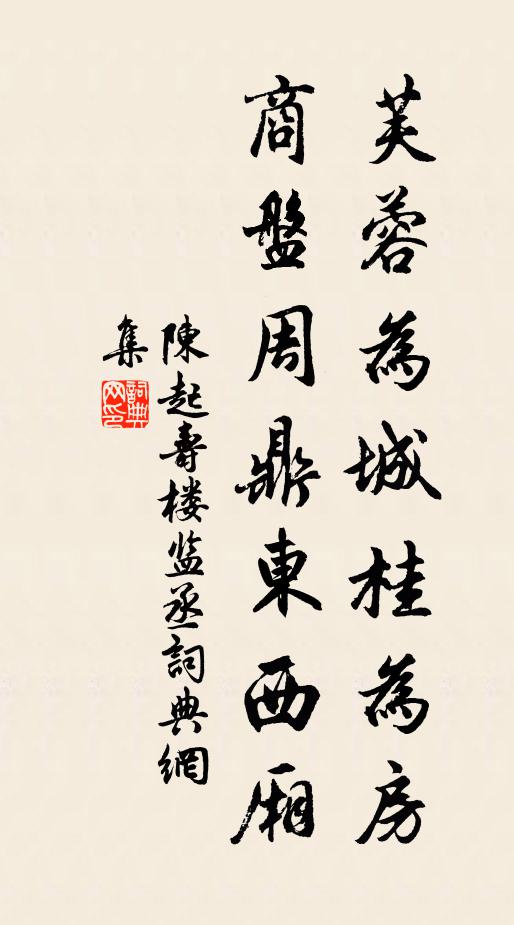 芙蓉為城桂為房
商盤周鼎東西廂
陳起壽楼监丞詞典網
集
詞典网印